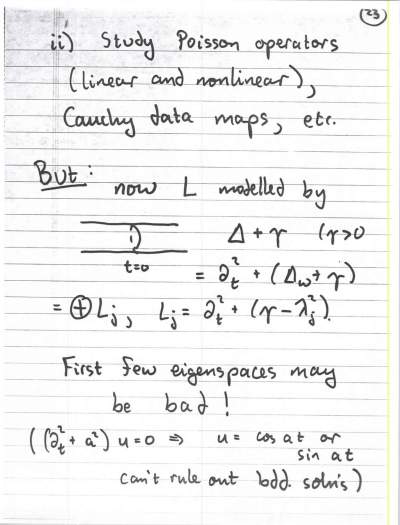 23
ii) Study Poisson operators
(linear and nonlinear),
Cauchy data maps, etc.
But: now L modelled by
Δ + γ (γ>0
t=0
= ∂_t^2 + (Δ_ω + γ)
= ⊕ L_j, L_j = ∂_t^2 + (γ - λ_j^2).
First few eigenspaces may
be bad!
((∂_t^2 + a^2) u=0 ⇒ u = cos at or
sin at
can't rule out bdd. soln's)